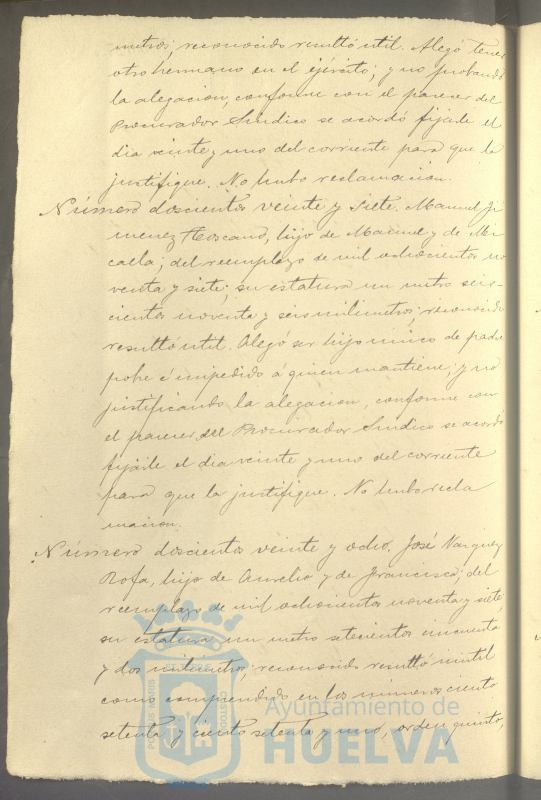 metros; reconocido resultó util. Alegó tener
otro hermano en el ejército; y no probando
la alegacion, conforme con el parecer del
Procurador Sindico se acordó fijarle el
dia veinte y uno del corriente para que la
justifique. No hubo reclamacion.
Número doscientos veinte y siete. Manuel Ji
menez Toscano, hijo de Manuel y de Mi
caela; del reemplazo de mil ochocientos no
venta y siete; su estatura un metro seis-
cientos noventa y seis milimetros; reconocido
resultó util. Alegó ser hijo unico de padre
pobre é impedido á quien mantiene; y no
justificando la alegacion, conforme con
el parecer del Procurador Sindico se acordó
fijarle el dia veinte y uno del corriente
para que la justifique. No hubo recla
macion.
Número doscientos veinte y ocho. José Vazquez
Rofa, hijo de Aurelio y de Francisca; del
reemplazo de mil ochocientos noventa y siete;
su estatura un metro setecientos cincuenta
y dos milimetros; reconocido resultó inutil
como comprendido en los números ciento
setenta y ciento setenta y uno, orden quinto,
Ayuntamiento de
HUELVA